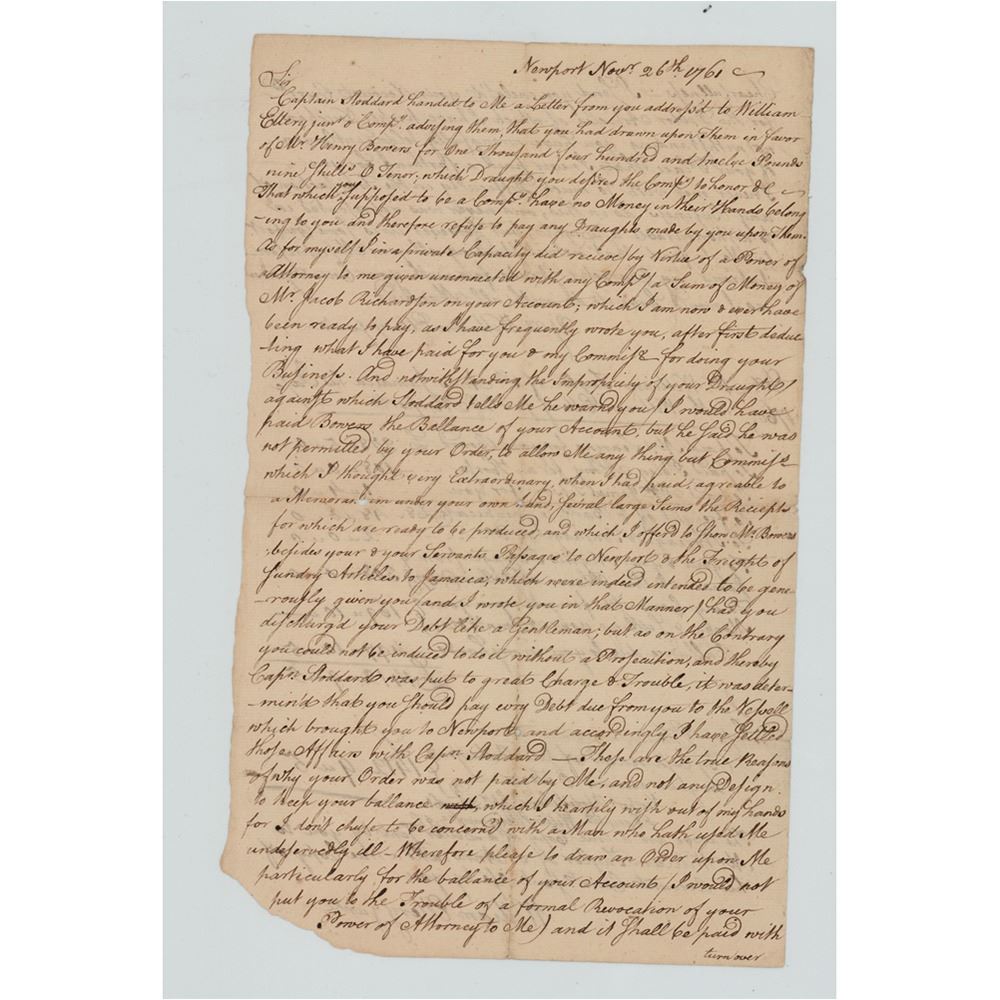 Newport Novr. 26th. 1761
Sir
Captain Stoddard handed to Me a Letter from you address'd to William
Ellery junr & Compy. advising them, that you had drawn upon Them in favor
of Mr. Henry Bowers for One Thousand four hundred and twelve Pounds
nine Shills O Tenor; which Draught you desired the Compy to honor &c
That which you supposed to be a Compy. have no Money in their Hands belong
-ing to you and therefore refuse to pay any Draughts made by you upon Them.
As for myself I in a private Capacity did recieve (by Virtue of a Power of
Attorney to me given unconnected with any Compy) a Sum of Money of
Mr. Jacob Richardson on your Account; which I am now & ever have
been ready to pay, as I have frequently wrote you, after first deduc
-ting what I have paid for you & my Commiss. for doing your
Business. And notwithstanding the Impropriety of your Draught (
against which Stoddard tells Me he warnd you) I would have
paid Bowers the Ballance of your Account, but he said he was
not permitted by your Order, to allow Me any thing but Commiss.
which I thought very Extraordinary, when I had paid, agreable to
a Memoran um under your own and, sevral large Sums the Reciepts
for which are ready to be produced, and which I offerd to Show Mr. Bowers
besides your & your Servants Passages to Newport & the Freight of
sundry Articles to Jamaica; which were indeed intended to be gene-
-rously given you (and I wrote you in that Manner) had you
dischargd your Debt like a Gentleman; but as on the Contrary
you could not be induced to do it without a Prosecution, and thereby
Capn. Stoddard was put to great Charge & Trouble, it was deter-
-min'd that you should pay evry Debt due from you to the Vessell
which brought you to Newport and accordingly I have settled
those Affairs with Capn. Stoddard — These are the true Reasons
why your Order was not paid by Me, and not any Design
to keep your ballance which I heartily wish out of my hands
for I don't chuse to be concernd with a Man who hath used Me
undeservedly ill — Wherefore please to draw an Order upon Me
particularly for the ballance of your Account (I would not
put you to the Trouble of a formal Revocation of your
Power of Attorney to Me) and it shall be paid with
turn over